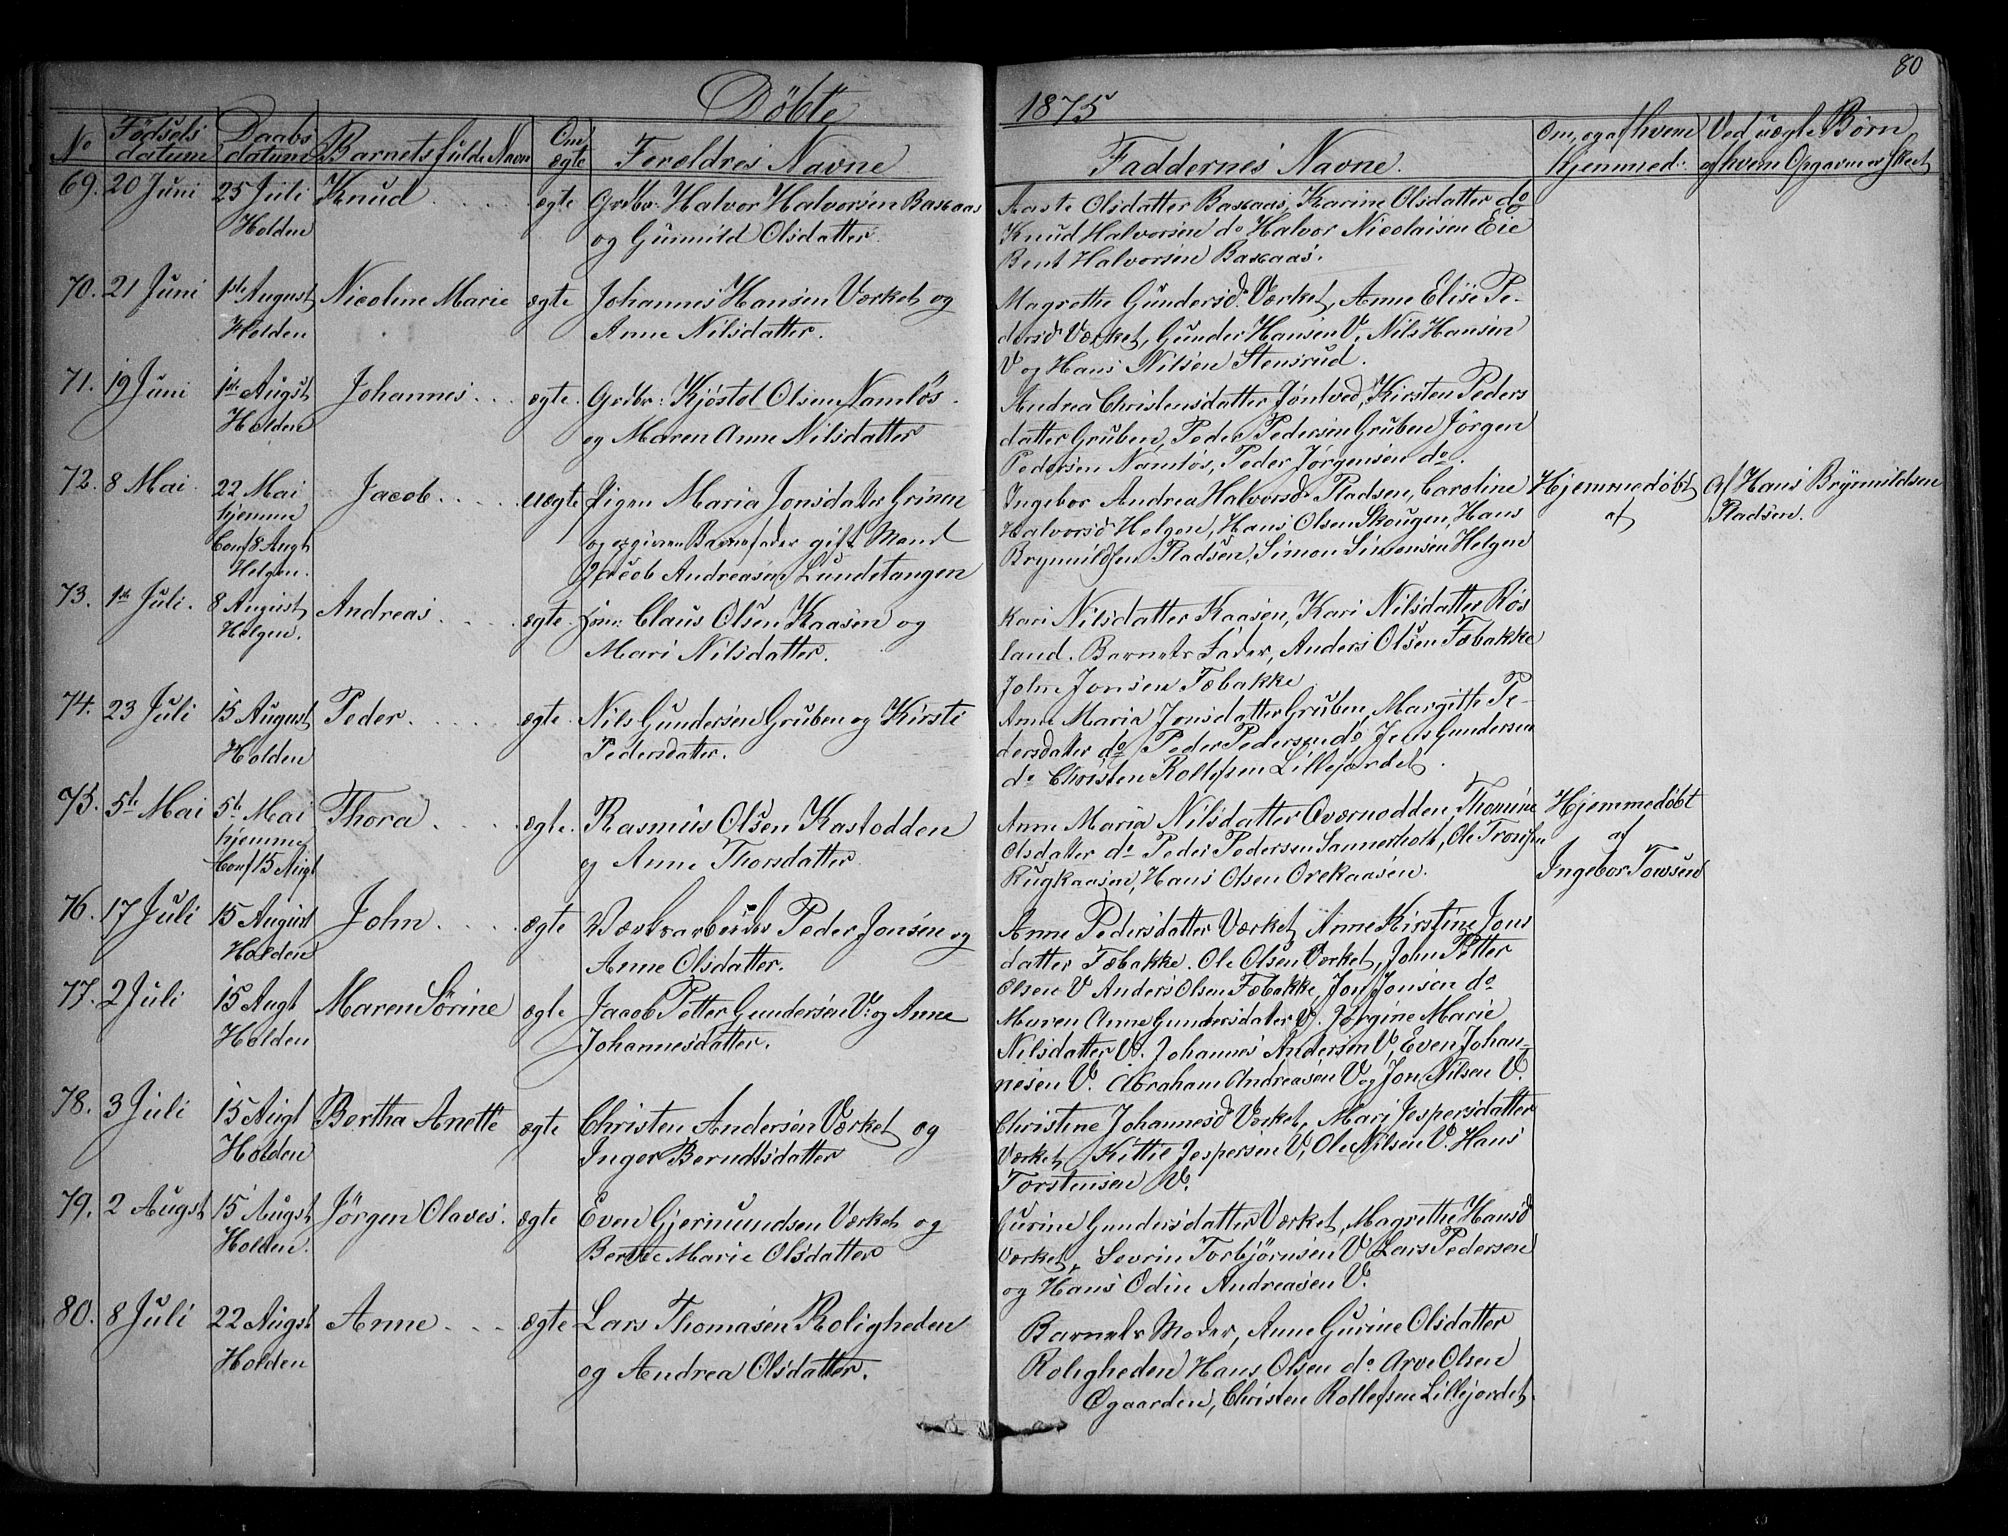 80
Döbte
1875
No
Födsels datum
Daabs datum
Barnets fulde Navn
Om ægte
Forældres Navne
Faddernes Navne.
Om, og af hvem hjemmed:
Ved uægte Børn af hvem Opgaven er skeet
69. 20 Juni
25 Juli
Holden
Knud
ægte
Grdbr: Halvor Halvorsen Baxaas
og Gunnild Olsdatter.
Aaste Olsdatter Baxaas, Karine Olsdatter do
Knud Halvorsen do Halvor Nicolaisen Eie
Bent Halvorsen Baxaas.
70. 21 Juni
1ste August
Holden
Nicoline Marie
ægte
Johannes Hansen Værket og
Anne Nilsdatter.
Magrethe Gundersd. Værket, Anne Elise Pe-
dersd Værket, Gunder Hansen V, Nils Hansen
V og Hans Nilsen Stensrud.
71. 19 Juni
1ste Augst
Holden
Johannes
ægte.
Grdbr: Kjöstol Olsen Namlös
og Maren Anne Nilsdatter
Andrea Christensdatter Jöntved, Kirsten Peders
datter Gruben, Peder Pedersen Gruben Jörgen
Pedersen Namlös, Peder Jörgensen do.
72. 8 Mai
22 Mai
hjemme
Conf 8 Augt
Helgen.
Jacob
uægte
Pigen Maria Jonsdatter Grinen
og opgiven Barnefader gift Mand
Jacob Andreasen Lundetangen
Ingebor Andrea Halvorsd. Pladsen, Caroline
Halvorsd Helgen, Hans Olsen Skougen, Hans
Brynnildsen Pladsen, Simon Simonsen Helgen
Hjemmedöbt
af
Af Hans Brynnildsen
Pladsen.
73. 1ste Juli.
8 August
Helgen.
Andreas
ægte.
Claus Olsen Kaasen og
Mari Nilsdatter.
Kari Nilsdatter Kaasen, Kari Nilsdatter Rös
land. Barnets Fader, Anders Olsen Fæbakke
John Jonsen Fæbakke
74. 23 Juli
15 August
Holden
Peder
ægte.
Nils Gundersen Gruben og Kirsti
Pedersdatter.
Anne Maria Jonsdatter Gruben, Margithe Pe-
dersdatter do Peder Pedersen do Jens Gundersen
do Christen Rollefsen Lillejordet.
75. 5te Mai
5te Mai
hjemme
Conf 15 Augt
Thora
ægte.
Rasmus Olsen Kastodden
og Anne Thorsdatter
Anne Maria Nilsdatter Qværnodden, Thomine
Olsdatter do Peder Pedersen Sannerholt, Ole
Rugkaasen, Hans Olsen Orekaasen.
Hjemmedöbt
af
Ingebor
76. 17 Juli
15 August
Holden
John
ægte
Værksarbeider Peder Jonsen og
Anne Olsdatter.
Anne Pedersdatter Værket, Anne Kirstine Jons
datter Fæbakke. Ole Olsen Værket, John Petter
Olsen V Anders Olsen Fæbakke, Jon Jonsen do
77. 2 Juli
15 Augt
Holden
Maren Sörine
ægte
Jacob Petter Gundersen V. og Anne
Johannesdatter.
Maren Anne Gundersdatter V. Jørgine Marie
Nilsdatter V. Johannes Andersen V, Even Johan-
nesen V. Abraham Andreasen V og Jon Nilsen V.
78. 3 Juli
15 Augt
Holden
Bertha Anette
ægte
Christen Andersen Værket og
Inger Berndtsdatter
Christine Johannesd Værket, Mari Jespersdatter
Værket, Kittil Jespersen V, Ole Nilsen V. Hans
Torstensen V.
79. 2 Augst
15 Augst
Holden.
Jörgen Olaves.
ægte
Even Gjermundsen Værket og
Berthe Marie Olsdatter
Gurine Gundersdatter Værket, Magrethe Hansd
Værket, Sevrin Torbjörnsen V Lars Pedersen
og Hans Odin Andreasen V.
80. 8 Juli
22 Augst
Holden
Anne
ægte
Lars Thomasen Roligheden
og Andrea Olsdatter.
Barnets Moder, Anne Gurine Olsdatter
Roligheden, Hans Olsen do Arve Olsen
Øgaarden, Christen Rollefsen Lillejordet.